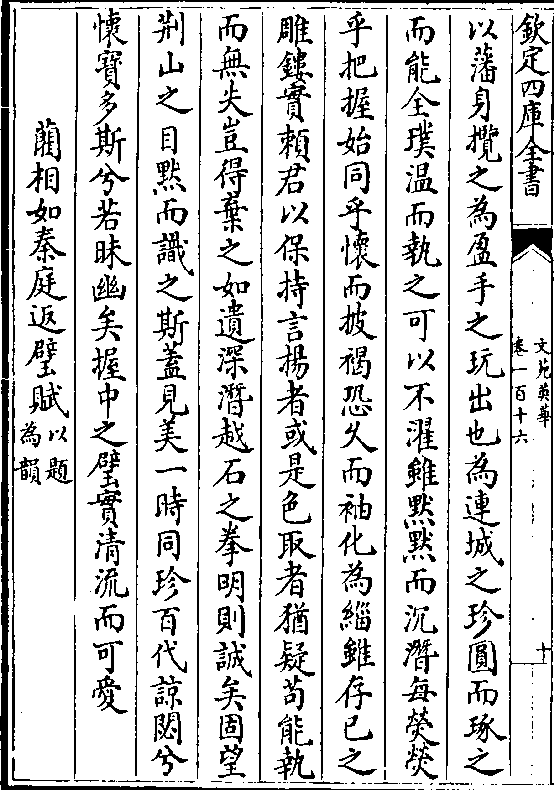 欽定四庫全書
文苑英華
卷一百十六
十
以藩身攬之為盈手之玩出也為連城之珍圓而琢之
而能全璞温而執之可以不濯雖黙黙而沉潛每熒熒
乎把握始同乎懐而披褐恐久而袖化為緇雖存已之
雕鏤實頼君以保持言揚者或是色取者猶疑苟能執
而無失豈得棄之如遺深潛越石之拳明則誠矣固望
荆山之目黙而識之斯蓋見美一時同珍百代諒閟兮
懐寳多斯兮若昧幽矣握中之璧實清流而可愛
藺相如秦庭返璧賦以題為韻